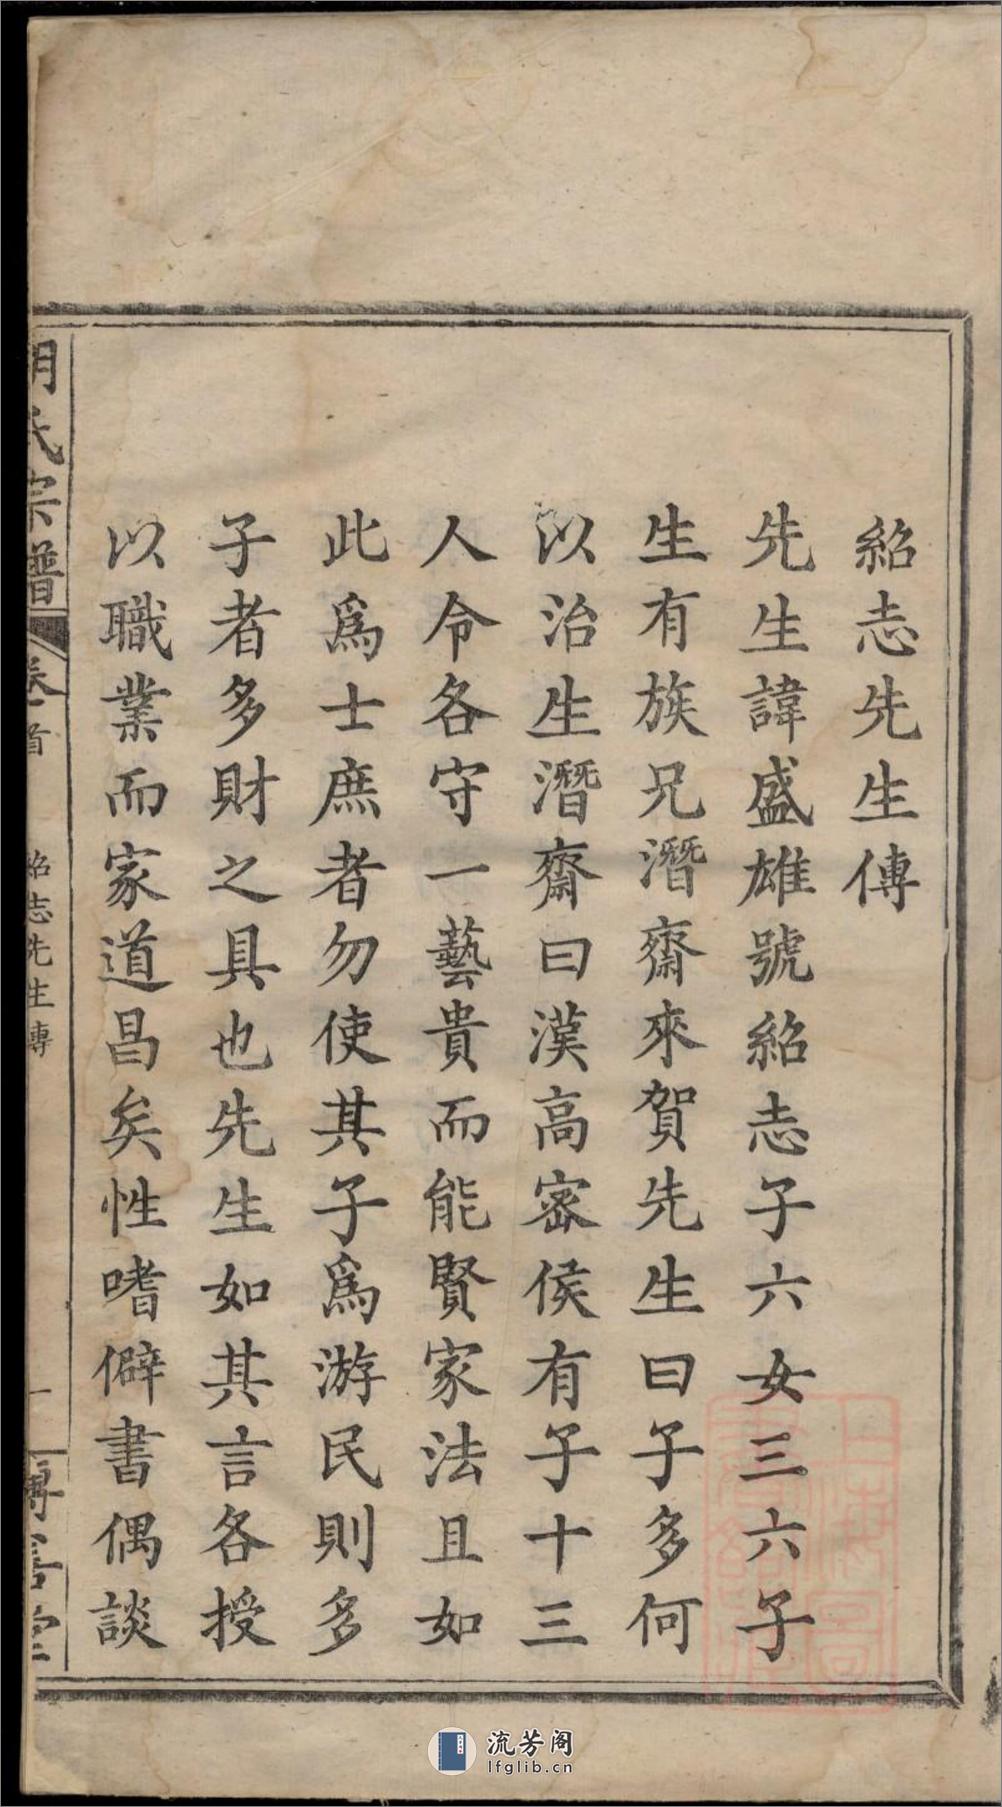 紹志先生傳
先生諱盛雄號紹志子六女三六子
生有族兄潛齋來賀先生曰子多何
以治生潛齋曰漢高密侯有子十三
人令各守一藝貴而能賢家法且如
此爲士庶者勿使其子爲游民則多
子者多財之具也先生如其言各授
以職業而家道昌矣性嗜僻書偶談
氏宗譜
卷首
紹志先生傳
一
善堂
流芳阁
lfglib.cn